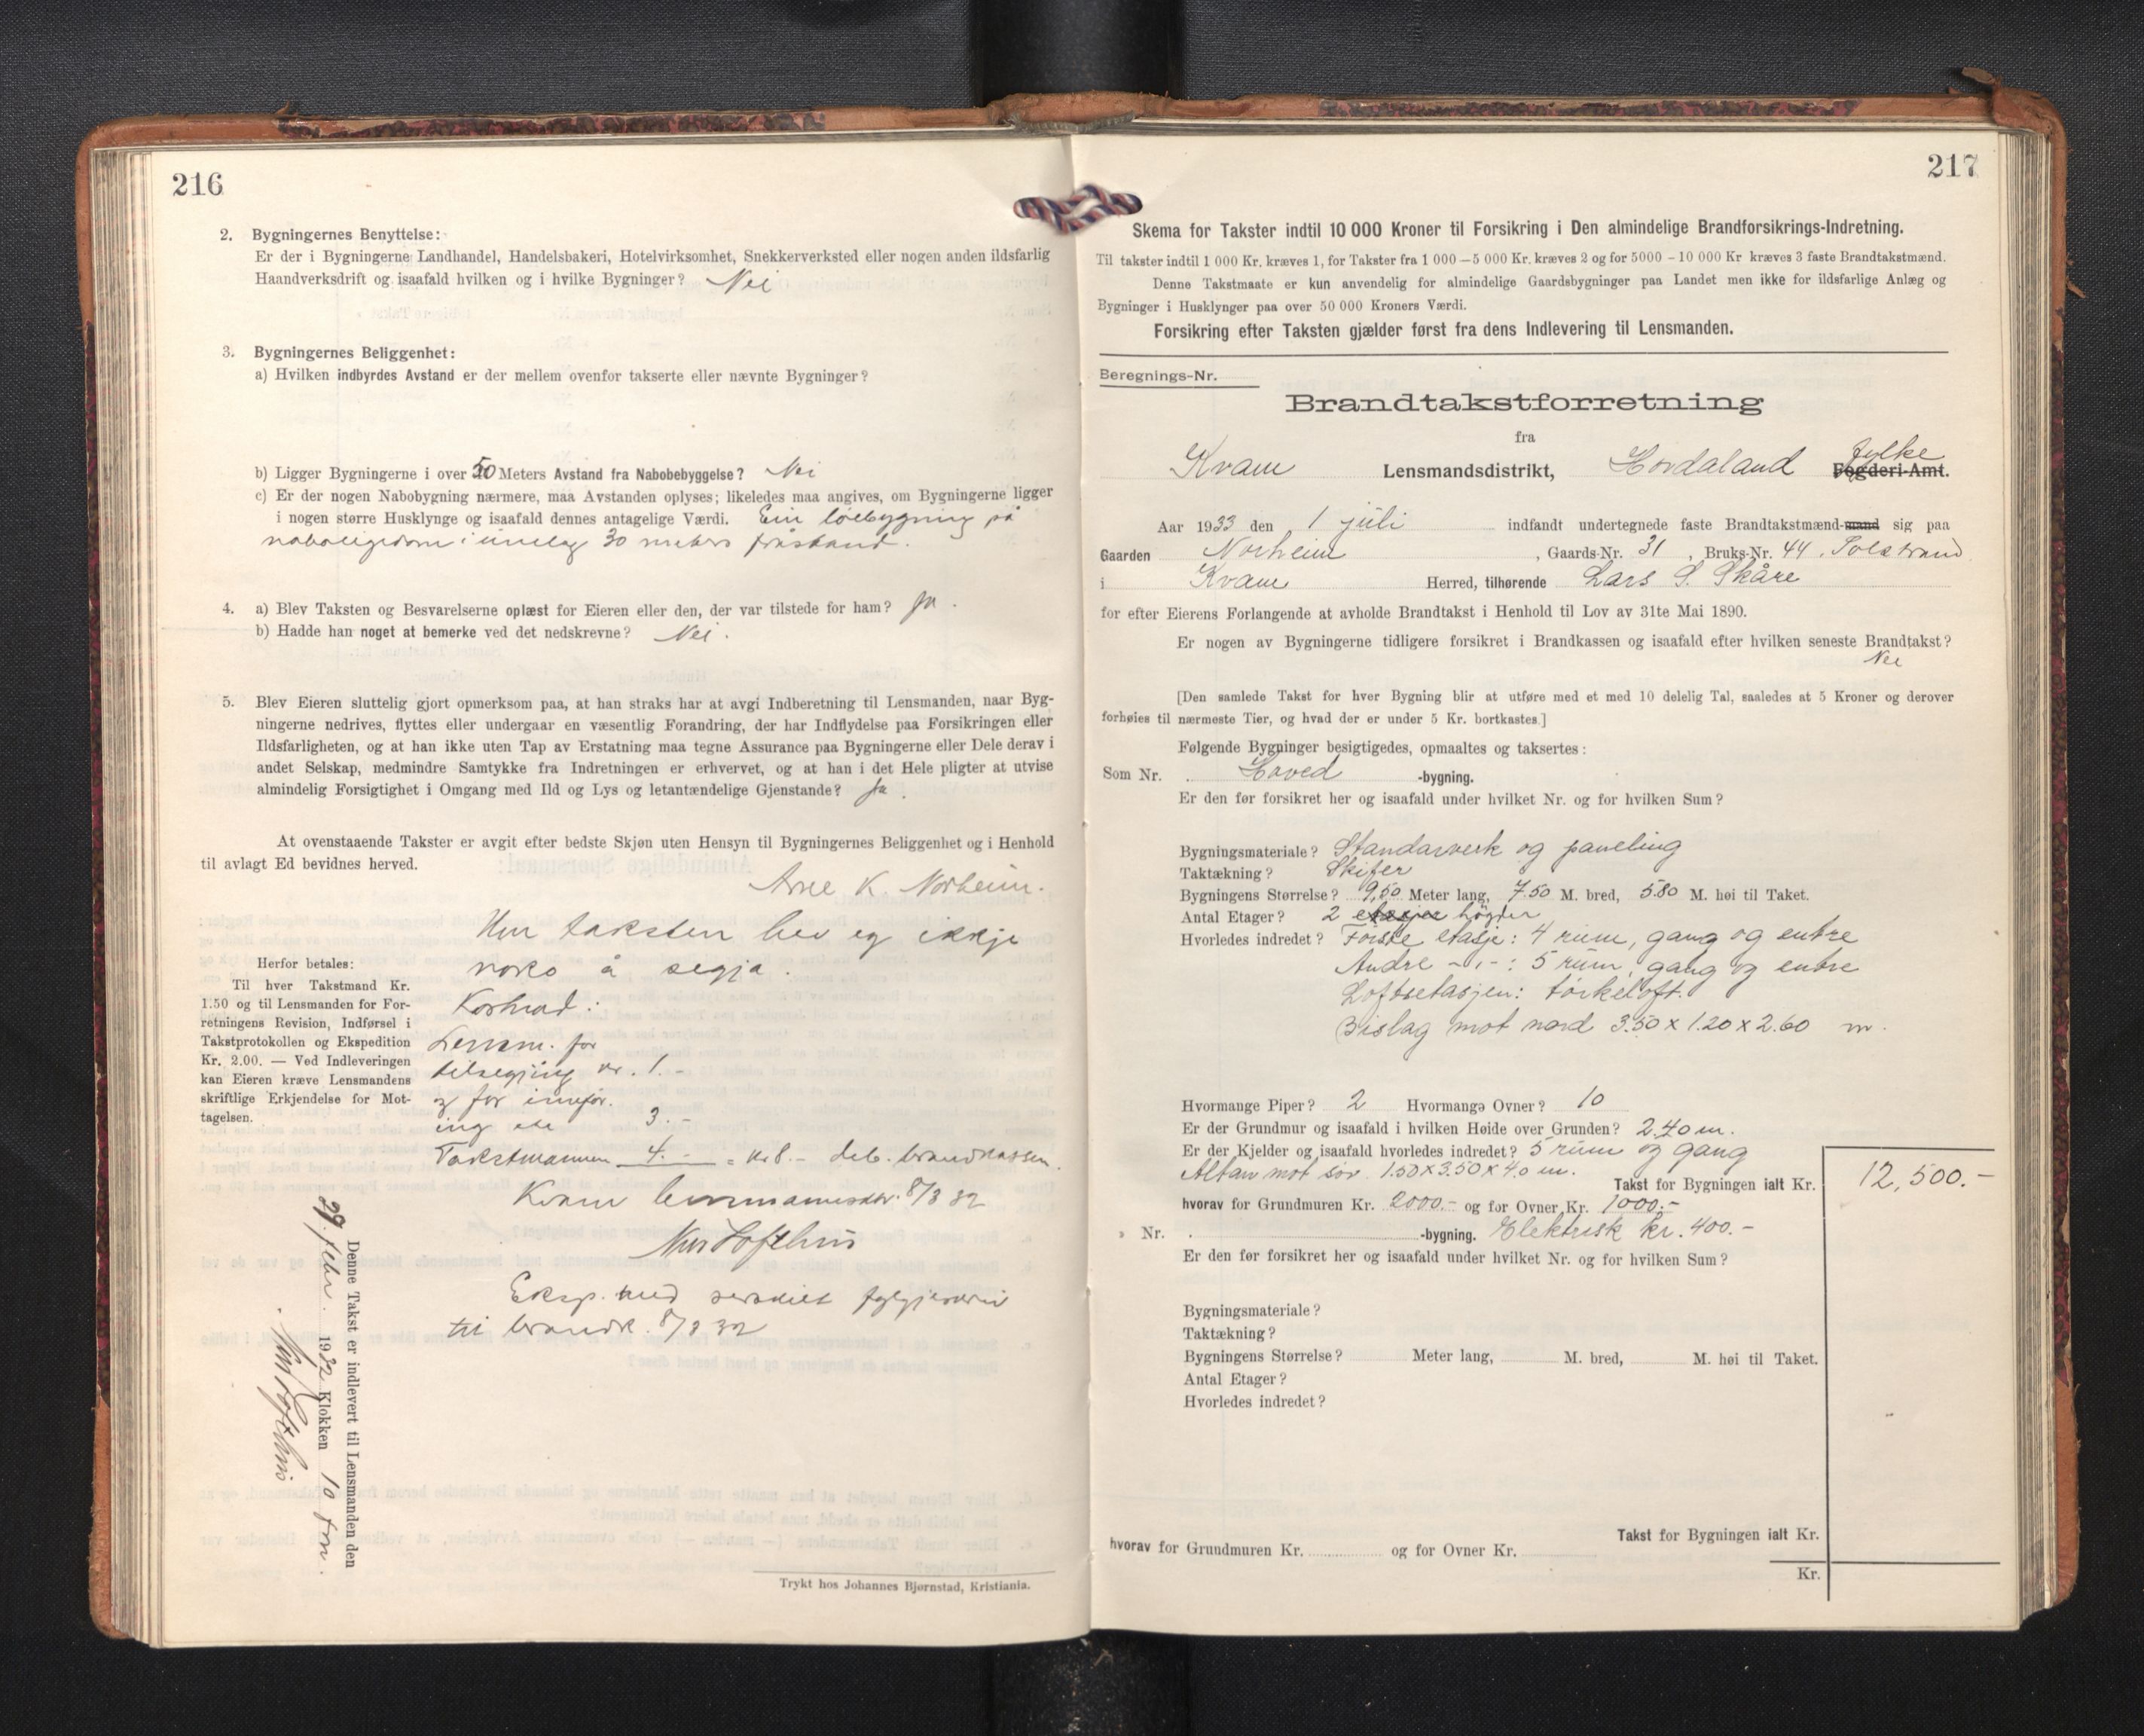 216
2. Bygningernes Benyttelse:
Er der i Bygningerne Landhandel, Handelsbakeri, Hotelvirksomhet, Snekkerverksted eller nogen anden ildsfarlig
Haandverksdrift og isaafald hvilken og i hvilke Bygninger? Nei
3. Bygningernes Beliggenhet:
a) Hvilken indbyrdes Avstand er der mellem ovenfor takserte eller nævnte Bygninger?
b) Ligger Bygningerne i over 50 Meters Avstand fra Nabobebyggelse? Nei
c) Er der nogen Nabobygning nærmere, maa Avstanden oplyses; likeledes maa angives, om Bygningerne ligger
i nogen større Husklynge og isaafald dennes antagelige Værdi. Ein löebygning på
naboeigedom i umlag 30 meters fråstand.
4. a) Blev Taksten og Besvarelserne oplæst for Eieren eller den, der var tilstede for ham? Ja.
b) Hadde han noget at bemerke ved det nedskrevne? Nei.
5. Blev Eieren sluttelig gjort opmerksom paa, at han straks har at avgi Indberetning til Lensmanden, naar Byg-
ningerne nedrives, flyttes eller undergaar en væsentlig Forandring, der har Indflydelse paa Forsikringen eller
Ildsfarligheten, og at han ikke uten Tap av Erstatning maa tegne Assurance paa Bygningerne eller Dele derav i
andet Selskap, medmindre Samtykke fra Indretningen er erhvervet, og at han i det Hele pligter at utvise
almindelig Forsigtighet i Omgang med Ild og Lys og letantændelige Gjenstande? Ja.
At ovenstaaende Takster er avgit efter bedste Skjøn uten Hensyn til Bygningernes Beliggenhet og i Henhold
til avlagt Ed bevidnes herved.
Arne K. Norheim.
Um taksten hev eg ikkje
noko å segja.
Kostnad:
Lensm. for
tilsegjing kr. 1.-
og for innför.
ing etc 3.-
Takstmannen 4.- = kr 8.- deb. brandkassen.
Kvam lensmannsktr. 8/3 32
Nils Lofthus
Eksp. med serskilt fylgjeskriv
til brandk. 8/3 32
Herfor betales:
Til hver Takstmand Kr.
1.50 og til Lensmanden for For-
retningens Revision, Indførsel i
Takstprotokollen og Ekspedition
Kr. 2.00. — Ved Indleveringen
kan Eieren kræve Lensmandens
skriftlige Erkjendelse for Mot-
tagelsen.
Denne Takst er indlevert til Lensmanden den
29. febr. 1932 Klokken 10 fm.
Nils Lofthus
Trykt hos Johannes Bjørnstad, Kristiania.
217
Skema for Takster indtil 10 000 Kroner til Forsikring i Den almindelige Brandforsikrings-Indretning.
Til takster indtil 1 000 Kr. kræves 1, for Takster fra 1 000 — 5 000 Kr. kræves 2 og for 5000 - 10 000 Kr kræves 3 faste Brandtakstmænd.
Denne Takstmaate er kun anvendelig for almindelige Gaardsbygninger paa Landet men ikke for ildsfarlige Anlæg og
Bygninger i Husklynger paa over 50 000 Kroners Værdi.
Forsikring efter Taksten gjælder først fra dens Indlevering til Lensmanden.
Beregnings-Nr.
Brandtakstforretning
fra
Kvam Lensmandsdistrikt, Hordaland fylke Fogderi-Amt.
Aar 1933 den 1 juli indfandt undertegnede faste Brandtakstmænd-mand sig paa
Gaarden Norheim, Gaards-Nr. 31, Bruks-Nr. 44, Solstrand
i Kvam Herred, tilhørende Lars S. Skåre
for efter Eierens Forlangende at avholde Brandtakst i Henhold til Lov av 31te Mai 1890.
Er nogen av Bygningerne tidligere forsikret i Brandkassen og isaafald efter hvilken seneste Brandtakst?
Nei
[Den samlede Takst for hver Bygning blir at utføre med et med 10 delelig Tal, saaledes at 5 Kroner og derover
forhøies til nærmeste Tier, og hvad der er under 5 Kr. bortkastes.]
Følgende Bygninger besigtigedes, opmaaltes og taksertes:
Som Nr. Hoved -bygning.
Er den før forsikret her og isaafald under hvilket Nr. og for hvilken Sum?
Bygningsmateriale? Standarverk og paneling
Taktækning? Skifer
Bygningens Størrelse? 9,50 Meter lang, 7.50 M. bred, 5.80 M. høi til Taket.
Antal Etager? 2 etasjer högder
Hvorledes indredet? Förste etasje: 4 rum, gang og entre
Andre -"-: 5 rum, gang og entre
Loftsetasjen: törkeloft.
Bislag mot nord 3.50 x 1.20 x 2.60 m.
Hvormange Piper? 2 Hvormange Ovner? 10
Er der Grundmur og isaafald i hvilken Høide over Grunden? 2.40 m.
Er der Kjelder og isaafald hvorledes indredet? 5 rum og gang
Altan mot sör 1.50 x 3.50 x 4.0 m.
Takst for Bygningen ialt Kr. 12,500.-
hvorav for Grundmuren Kr. 2000.- og for Ovner Kr. 1000.-
» Nr. -bygning. Elektrisk kr. 400.-
Er den før forsikret her og isaafald under hvilket Nr. og for hvilken Sum?
Bygningsmateriale?
Taktækning?
Bygningens Størrelse? Meter lang, M. bred, M. høi til Taket.
Antal Etager?
Hvorledes indredet?
Takst for Bygningen ialt Kr.
hvorav for Grundmuren Kr. og for Ovner Kr.
Kr.